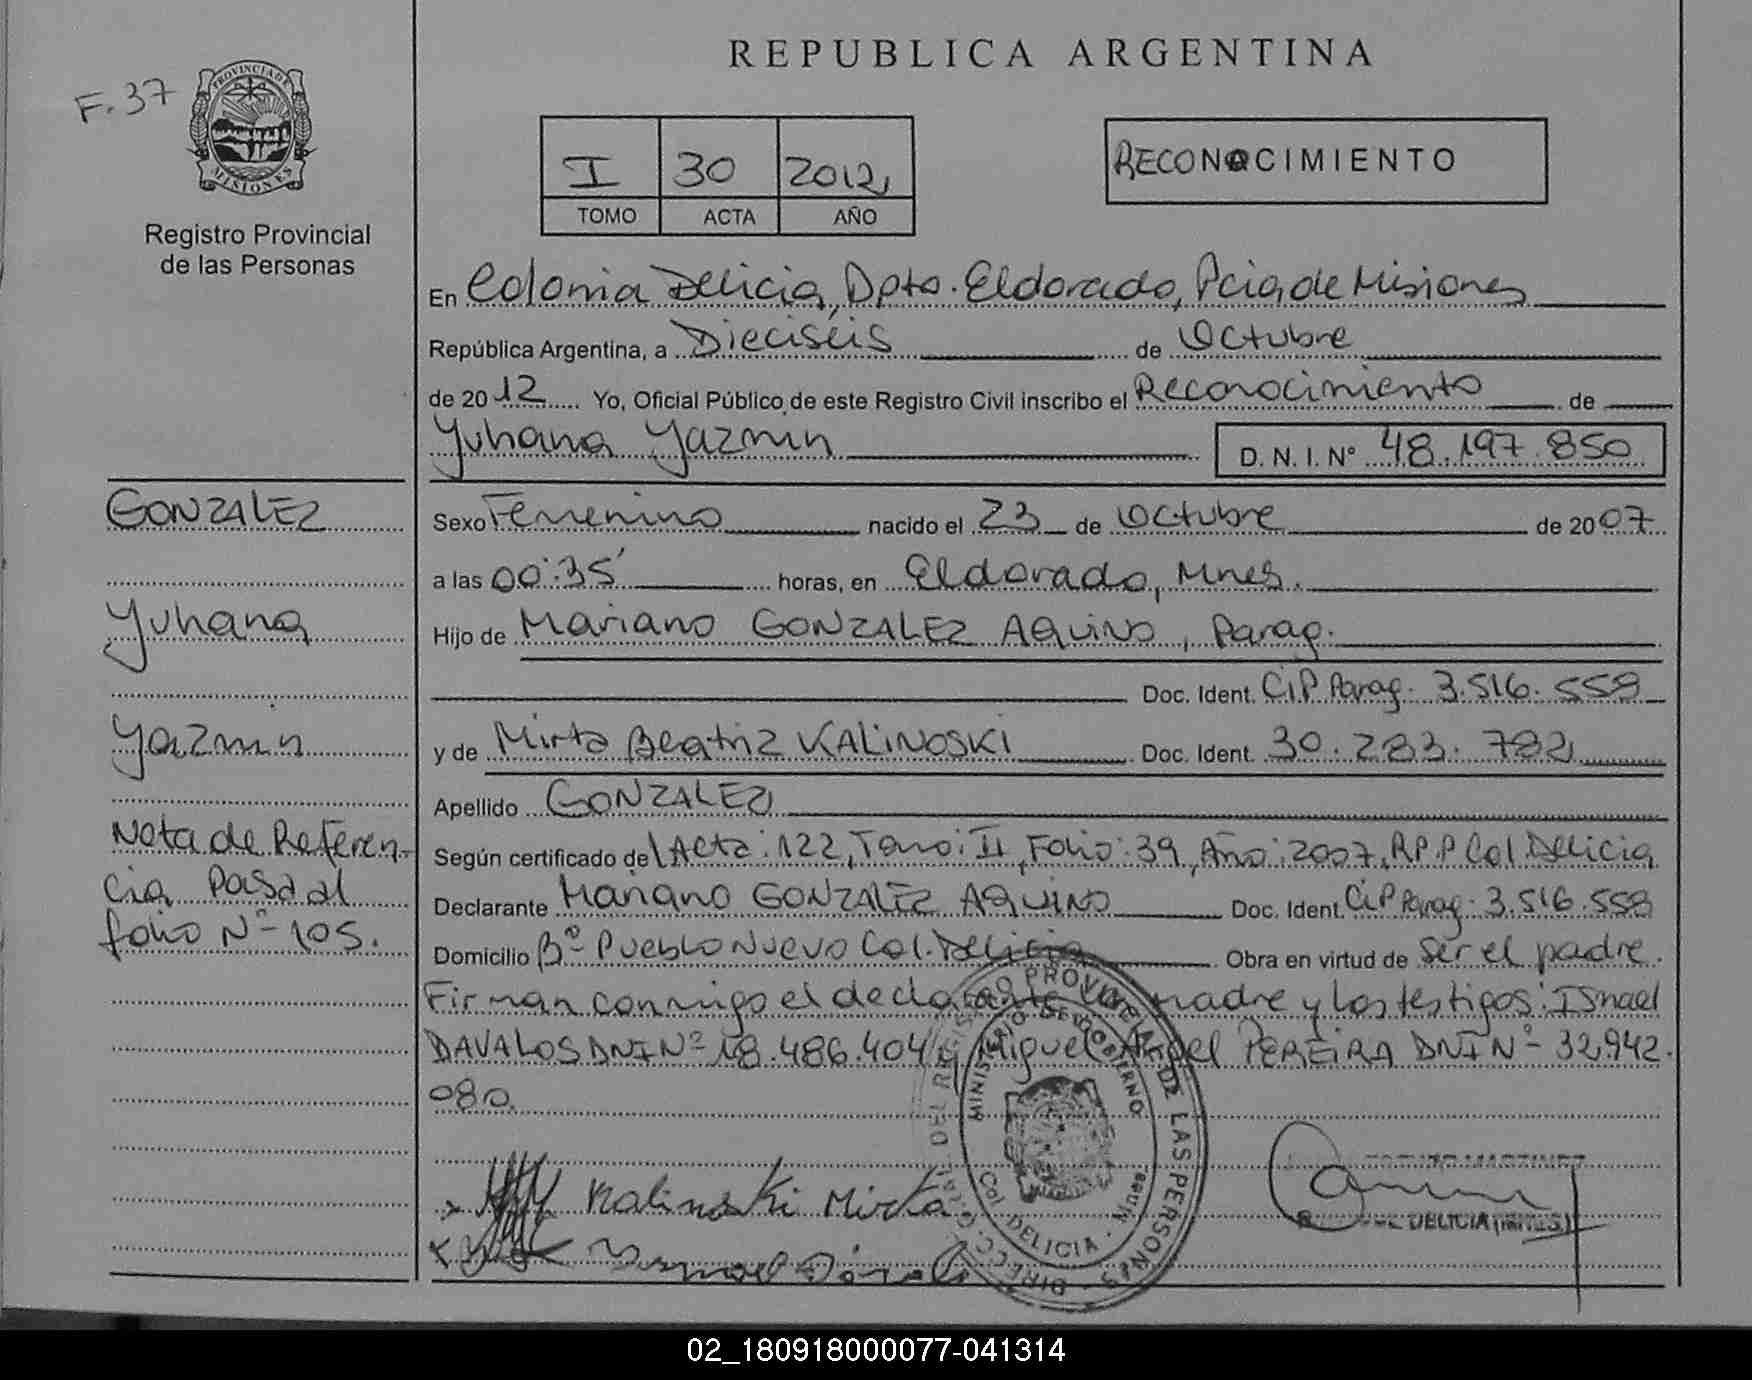 REPUBLICA ARGENTINA
F. 37
PROVINCIA DE
MISIONES
Registro Provincial
de las Personas
I 30 2012
TOMO ACTA AÑO
RECONOCIMIENTO
En Colonia Delicia, Dpto. Eldorado, Pcia, de Misiones
República Argentina, a Dieciséis de Octubre
de 2012 Yo, Oficial Público de este Registro Civil inscribo el Reconocimiento de
Yuhana Yazmin D. N. I. N° 48.197.850
GONZALEZ
Yuhana
Yazmin
Nota de Referen-
cia Pasa al
folio Nº 105.
Sexo Femenino nacido el 23 de Octubre de 2007
a las 00:35' horas, en Eldorado, Mnes.
Hijo de Mariano GONZALEZ AQUINO, Parag.
Doc. Ident. C.I.P. Parag. 3.516.558
y de Mirta Beatriz KALINOSKI Doc. Ident. 30.283.782
Apellido GONZALEZ
Según certificado del Acta: 122, Tomo: II, Folio: 39, Año: 2007, R.P.P Col. Delicia
Declarante Mariano GONZALEZ AQUINO Doc. Ident. C.I.P Parag. 3.516.558
Domicilio Bº Pueblo Nuevo Col. Delicia Obra en virtud de ser el padre.
Firman conmigo el declarante la madre y los testigos: Ismael
DAVALOS DNI Nº 18.486.404 y Miguel Angel PEREIRA DNI Nº 32.942.
080.
DIRECC. GRAL. DEL REGISTRO PROVINCIAL DE LAS PERSONAS
MINISTERIO DE GOBIERNO
Col. DELICIA - Mnes
Kalinoski Mirta
DELICIA (MNES.)
02_180918000077-041314